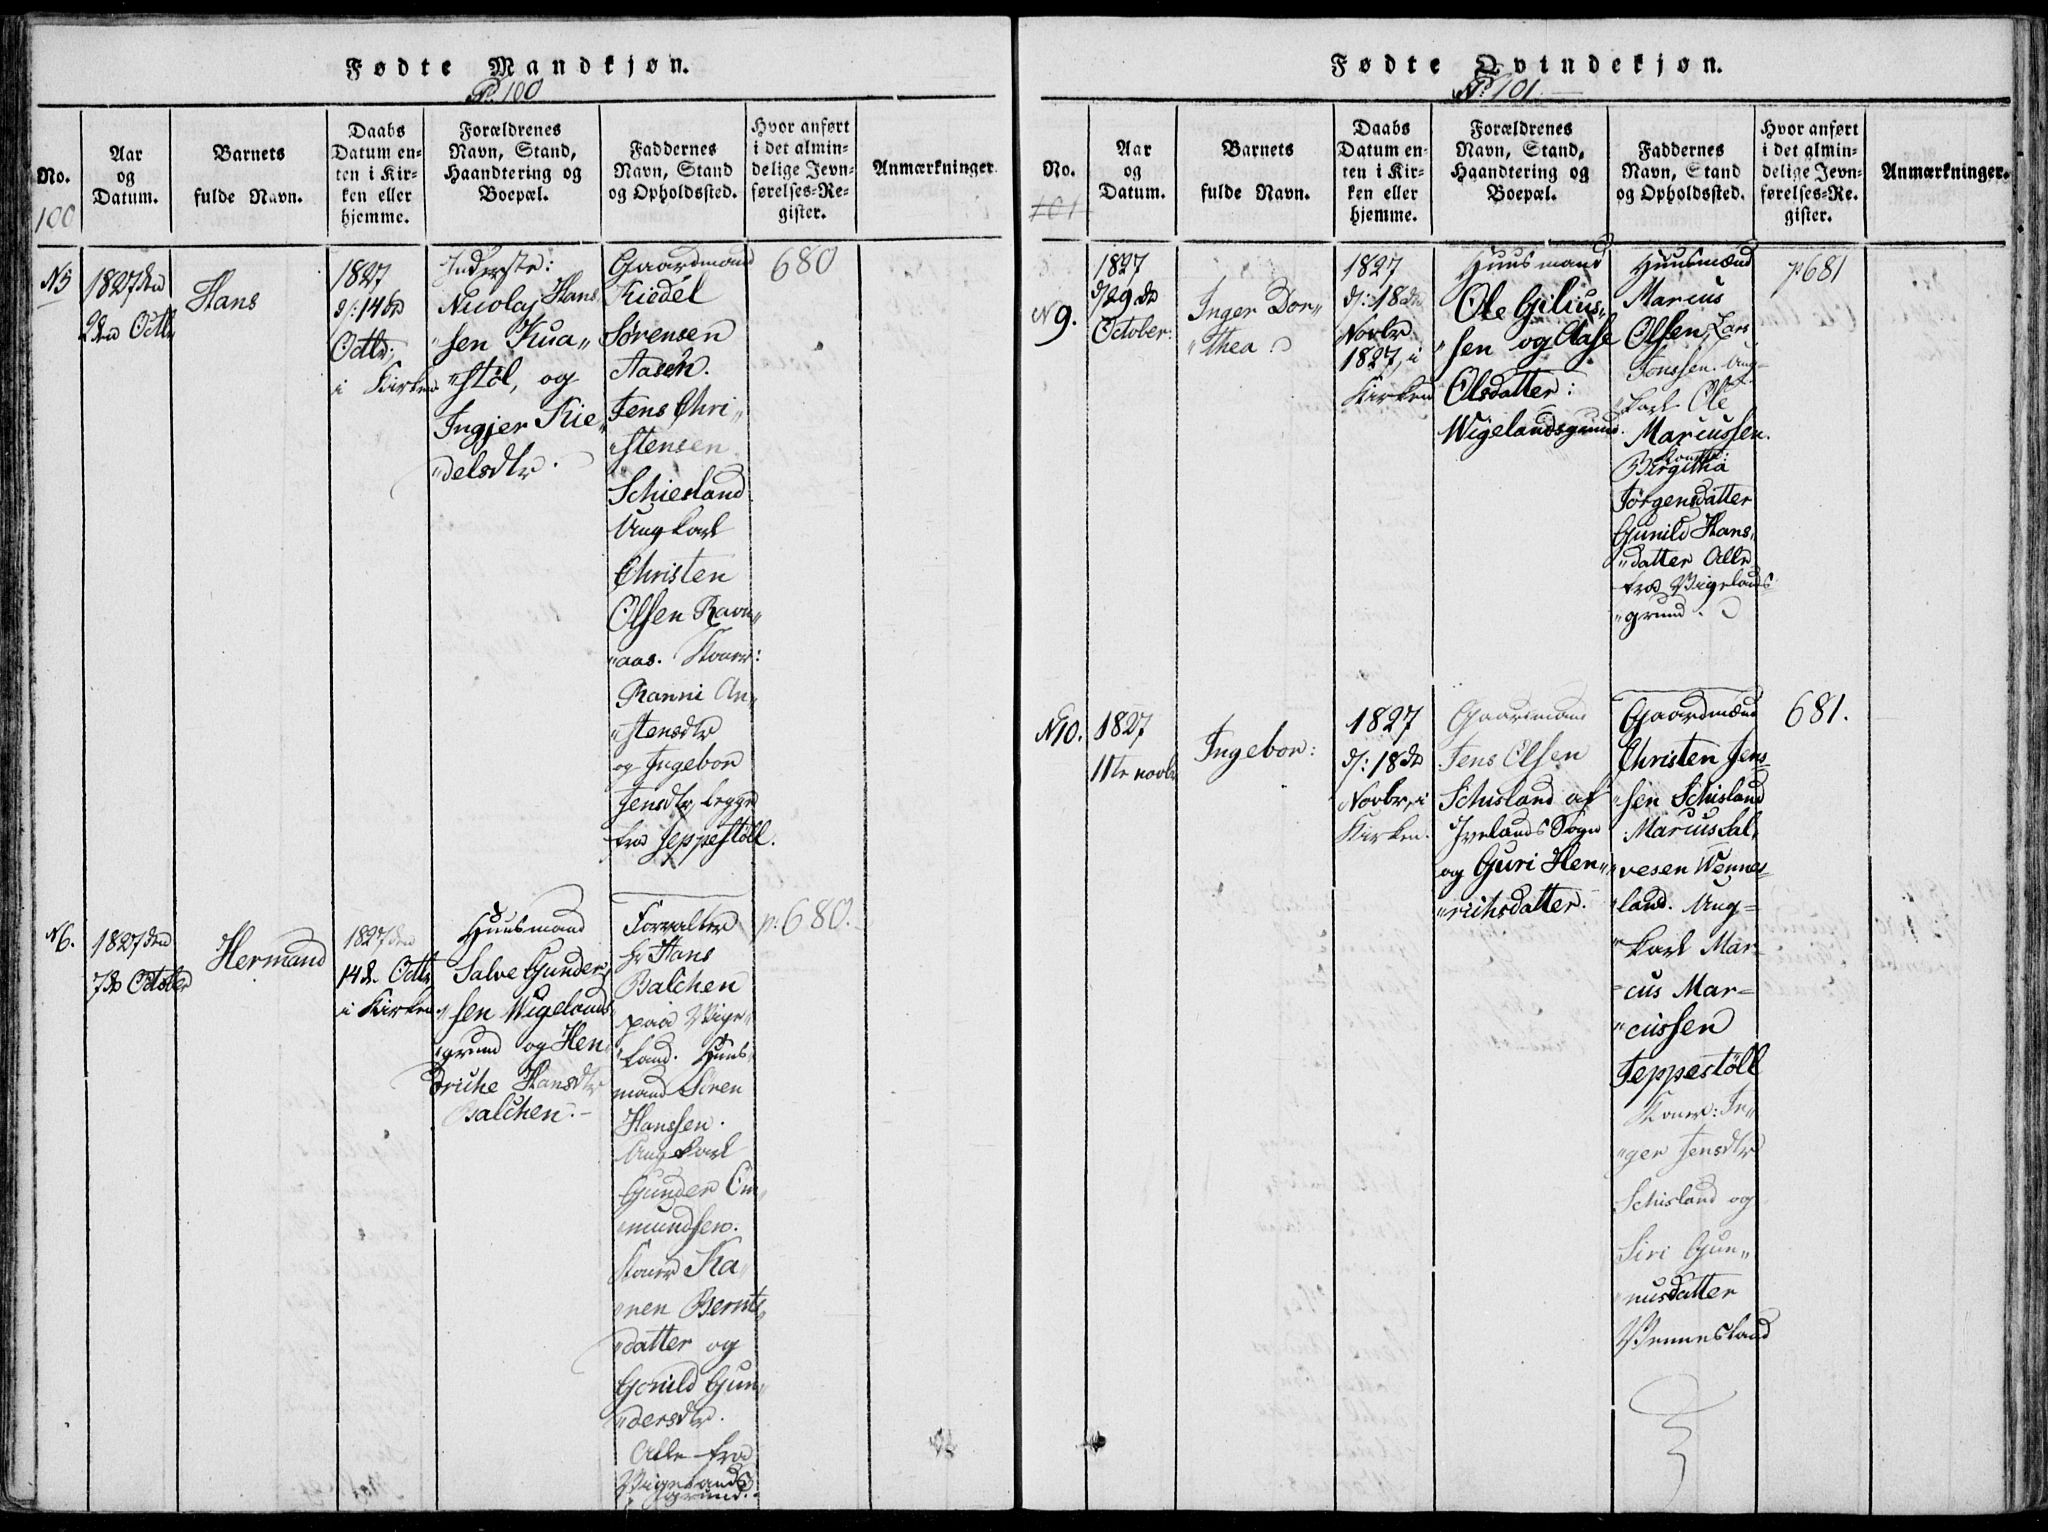 Fødte Mandkjøn.
P. 100
No.
Aar
og
Datum.
Barnets
fulde Navn.
Daabs
Datum en-
ten i Kir-
ken eller
hjemme.
Forældrenes
Navn, Stand,
Haandtering og
Boepæl.
Faddernes
Navn, Stand
og Opholdssted.
Hvor anført
i det almin-
delige Jevn-
førelses-Re-
gister.
Anmærkninger
100
N5
1827 den
2den Octbr
Hans
1827
d: 14de
Octbr:
i Kirken
Inderste:
Nicolay Hans
"sen Kua"
"støl, og
Ingjer Kie"
"delsdtr.
Gaardmand
Kiedel
Sørensen
Aasen.
Jens Chri"
"stensen
Schiesland
Ungkarl
Christen
Olsen Ravn"
"aas. Koner:
Ranni An"
"stensdtr
og Ingebor
Jensdtr begge
fra Jeppestøll.
680
N6.
1827 den
7de October
Hermand
1827 den
14de Octbr
i Kirken
Huusmand
Salve Gunder"
"sen Wigelands"
"grund og Hen"
driche Hansdtr
Balchen.
Forvalter
Hr Hans
Balchen
paa Vige"
"land. Huus"
mand Sören
Hanssen.
Ungkarl
Gunder Om"
"mundsen.
Koner Ka"
"ren Bernts"
"datter og
Gonild Gun"
"dersdtr.
Alle fra
Vigelands
grund.
p: 680.
Fødte Qvindekjøn.
P. 101
No.
Aar
og
Datum.
Barnets
fulde Navn.
Daabs
Datum en-
ten i Kir-
ken eller
hjemme.
Forældrenes
Navn, Stand,
Haandtering og
Boepæl.
Faddernes
Navn, Stand
og Opholdssted.
Hvor anført
i det almin-
delige Jevn-
førelses-Re-
gister.
Anmærkninger.
101
N9.
1827
d/29de
October.
Inger Dor"
"thea
1827
d: 18de
Novbr
1827, i
Kirken
Huusmand
Ole Gilius"
"sen og Aase
Olsdatter:
Wigelandsgrund.
Huusmænd
Marcus
Olsen, Lars
Jonssen. Ung-
karl Ole
Marcussen.
Koner:
Birgitha
Jörgensdatter
Gunild Hans"
"datter Alle
fra Vigelands
"grund.
p681
N10.
1827
11te novbr
Ingebor:
1827
d: 18de
Novbr, i
Kirken.
Gaardmand
Jens Olsen
Schisland af
Ivelands Sogn
og Guri Hen"
"richsdatter.
Gaardmænd
Christen Jens-
"sen Schisland
Marcus Sal"
"vesen Wennes-
"land. Ung-
"karl Mar-
cus Mar-
"cussen
Jeppestöll
Koner: In"
"ger Jensdtr
Schisland og
Siri Gun"
"nusdatter
Vennesland
681.